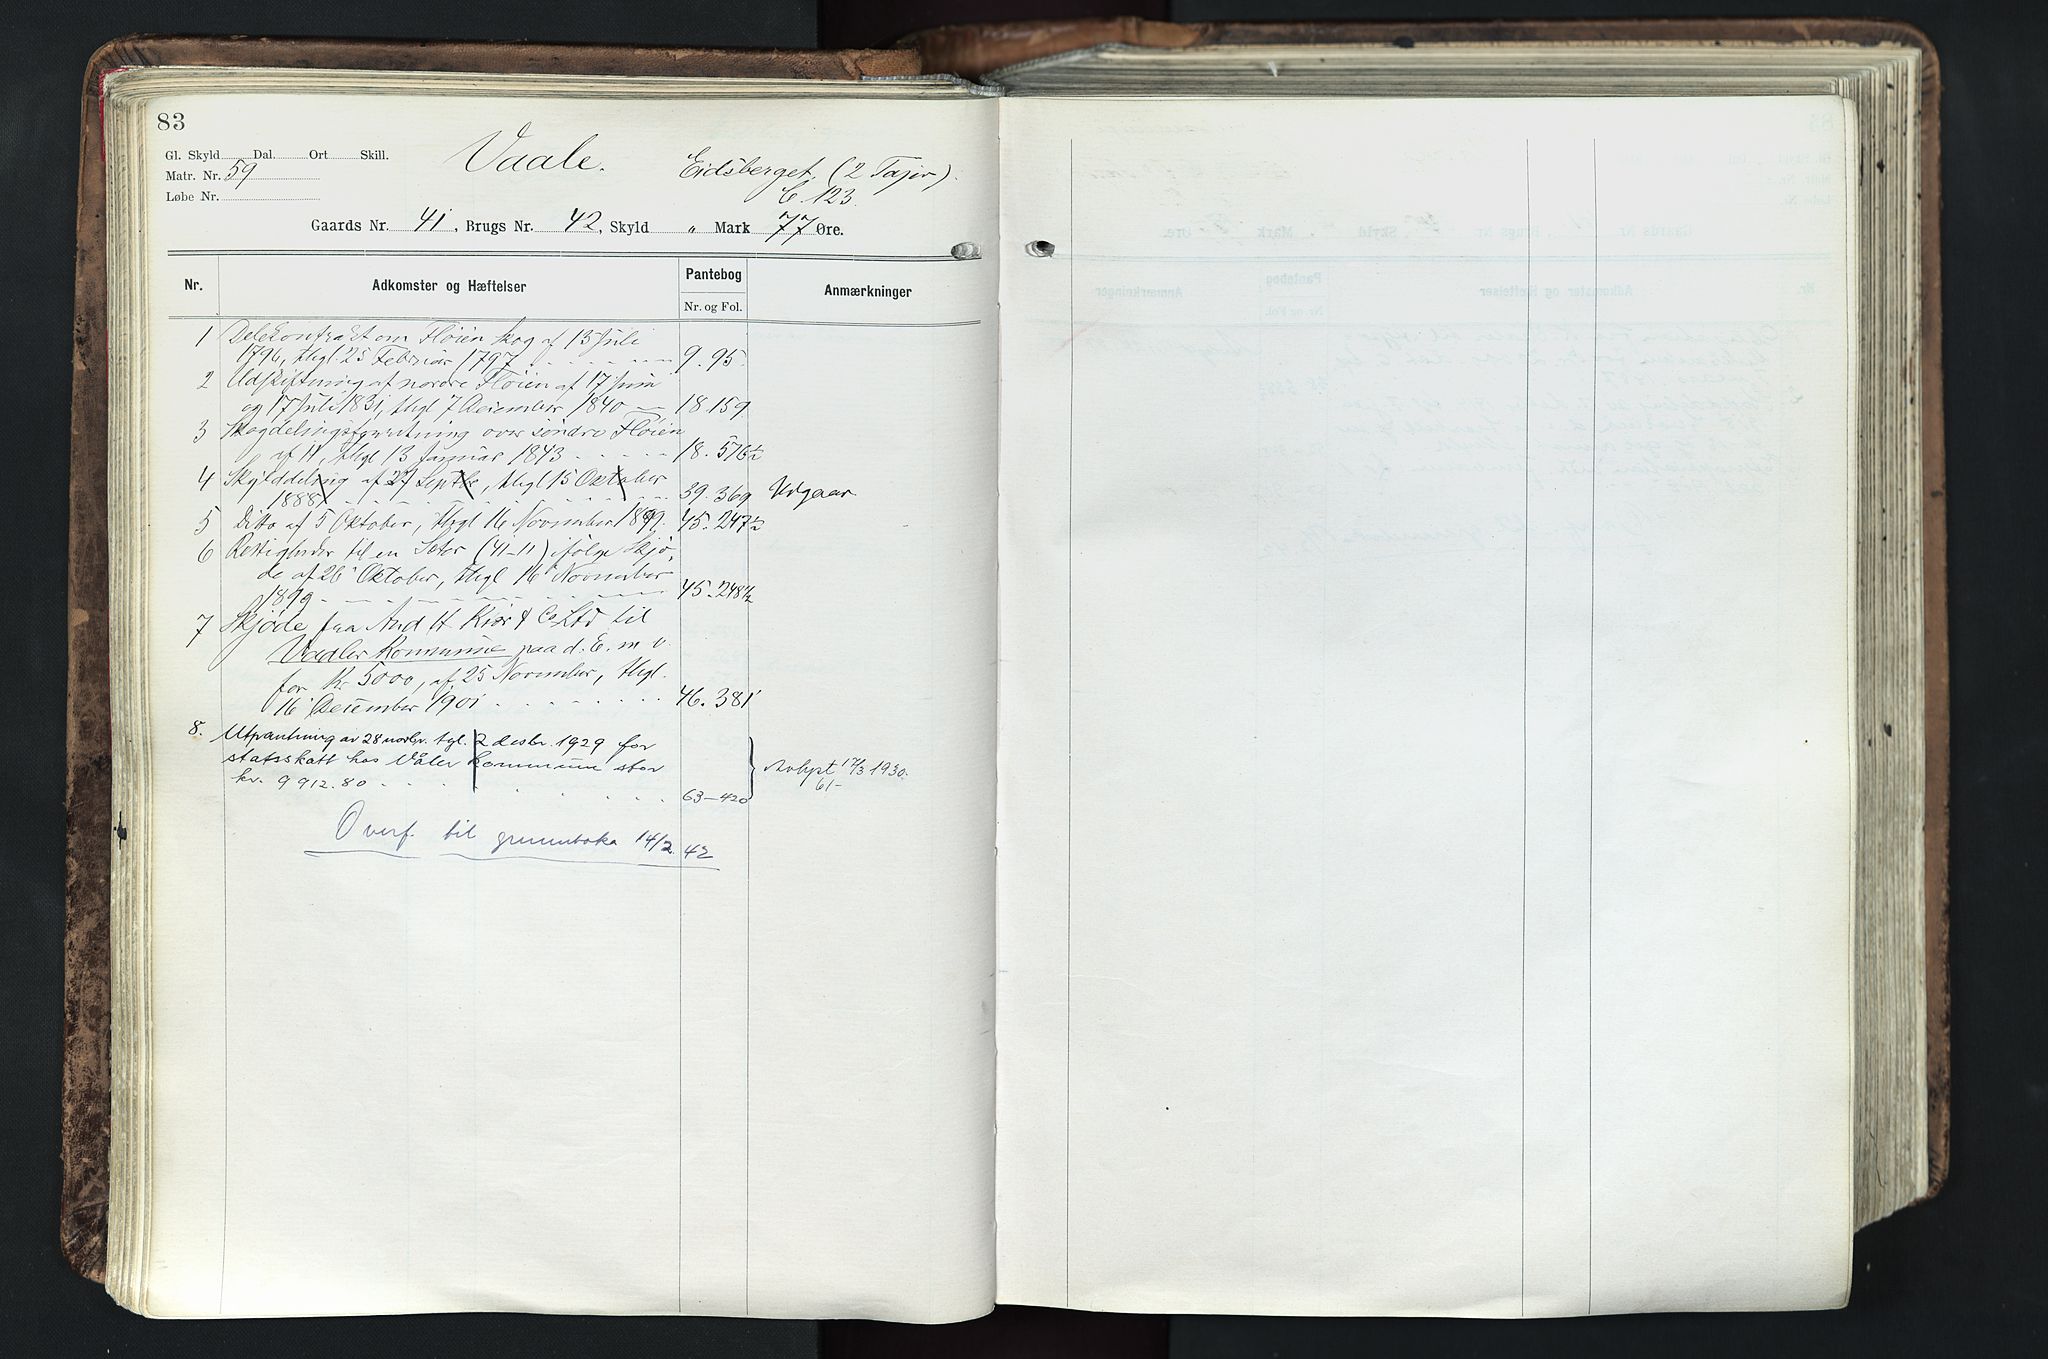 83
Gl. Skyld Dal. Ort Skill.
Vaale.
Matr. Nr. 59
Eidsberget, (2 Tajer).
Løbe Nr.
C. 123.
Gaards Nr. 41, Brugs Nr. 42, Skyld " Mark 77 Øre.
Nr. Adkomster og Hæftelser Pantebog Anmærkninger
Nr. og Fol.
1 Delekontrakt om Fløien skog af 13 Juli
1796, thgl. 25 Februar 1797 9. 95.
2 Udskiftning af nordre Fløien af 17 Juni
og 17 Juli 1831, thgl 7 December 1840 18. 159.
3 Skogdelingsforretning over søndre Fløien
af 11, thgl 13 Januar 1843 18. 576½
4 Skylddeling af 27 Septbr, thgl 15 Oktober
1888 39. 369 Udgaar
5 Ditto af 5 Oktober, thgl 16 November 1899. 45. 247½
6 Rettigheder til en Seter (41-11) ifølge Skjø-
de af 26 Oktober, thgl 16 November
1899 45. 248½
7 Skjøde fra And H. Kiør & Co Ltd til
Vaaler Kommune paa d. E. m v.
for Kr 5000, af 25 November, thgl.
16 December 1901 46. 381
8. Utpantning av 28 novbr. tgl. 2 desbr. 1929 for
statsskatt hos Våler kommune stor
kr. 9 912.80 63-420
Avlyst 17/3 1930.
61-
Overf. til grunnboka 14/2. 42